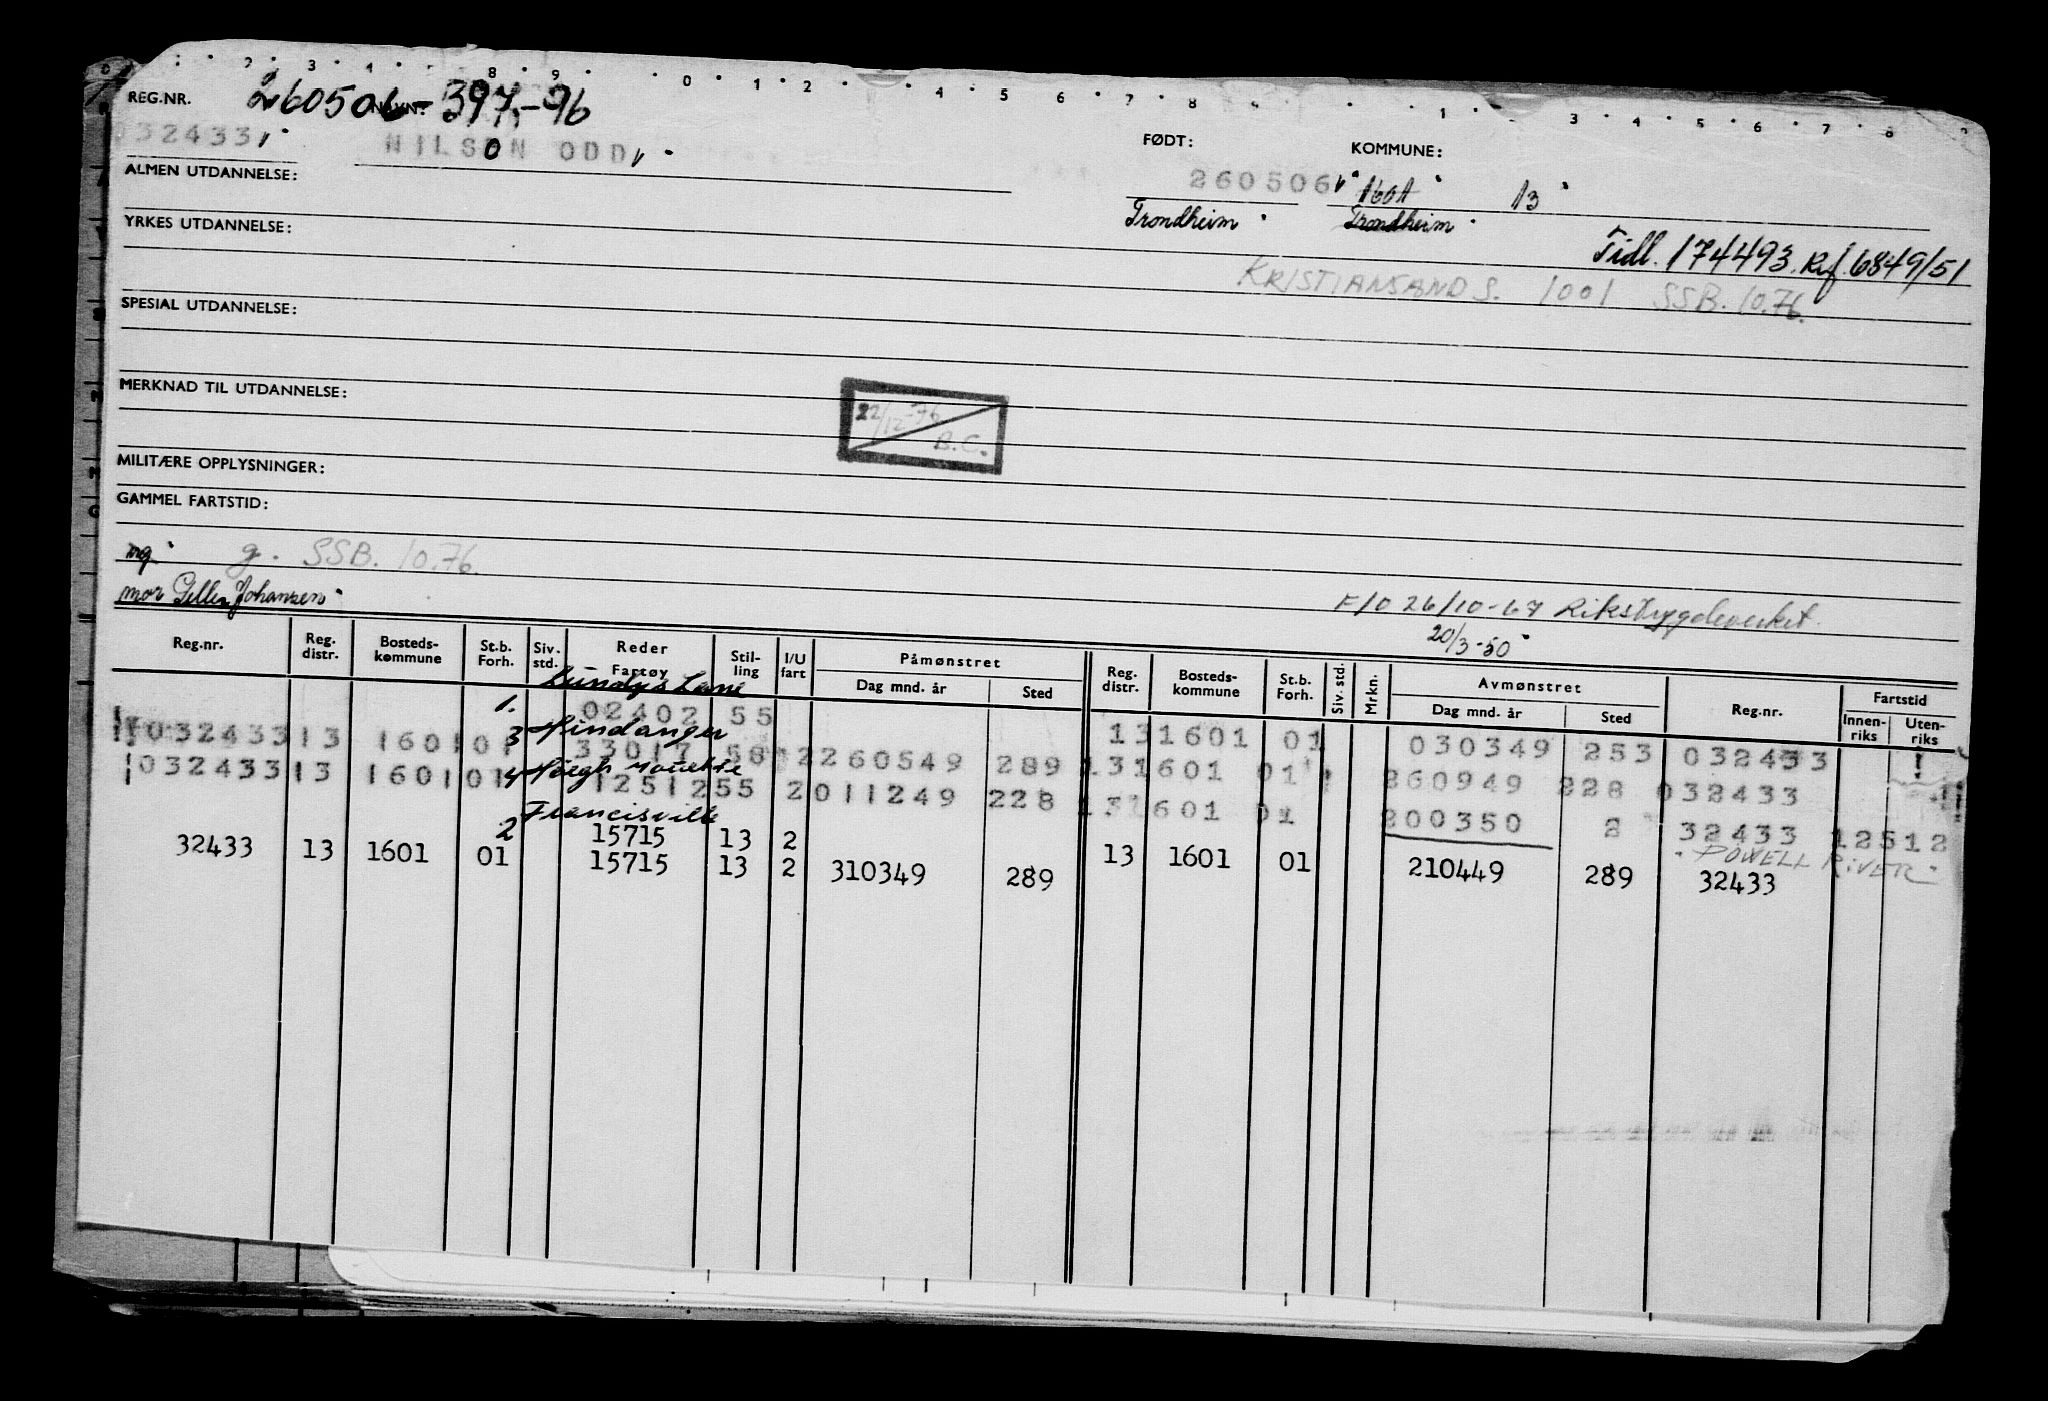 REG.NR. 260506-397-96 NAVN:
032433 NILSON ODD FØDT: KOMMUNE:
260506 1601 13
ALMEN UTDANNELSE: Trondheim Trondheim
YRKES UTDANNELSE: Tidl. 174493. Ref. 6849/51
KRISTIANSAND S. 1001 SSB. 10.76.
SPESIAL UTDANNELSE:
MERKNAD TIL UTDANNELSE:
22/12-76
B.C.
MILITÆRE OPPLYSNINGER:
GAMMEL FARTSTID:
g. SSB. 10.76.
mor Johansen
F/O 26/10-67 Rikstrygdeverket.
20/3-50
Reg.nr. Reg. distr. Bosteds-kommune St.b. Forh. Siv. std. Reder Fartøy Stil-ling I/U fart Påmønstret Dag mnd. år Sted Reg. distr. Bosteds-kommune St.b. Forh. Siv. std. Mrkn. Avmønstret Dag mnd. år Sted Reg.nr. Fartstid Innen-riks Uten-riks
1. Lundys Lane
02402 55 13 1601 01 030349 253 032433
3 Hindanger
032433 13 1601 01 33017 58 2 260549 289 13 1601 01 260949 228 032433
4 Höegh Mouette
032433 13 1601 01 12512 55 2 011249 228 13 1601 01 200350 2 32433 12512
Francisville
2 15715 13 2 POWELL RIVER
32433 13 1601 01 15715 13 2 310349 289 13 1601 01 210449 289 32433